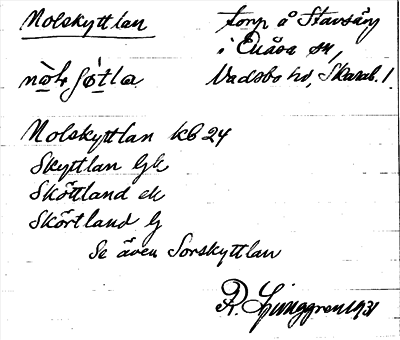 Nolskyttlan torp å Stavsäng
i Enåsa sn,
Vadsbo hd, Skarab. l.
Nolskyttlan kb 24
Skyttlan Gk
Sköttland ek
Skörtland G
Se även Sörskyttlan
R. Ljunggren 1931